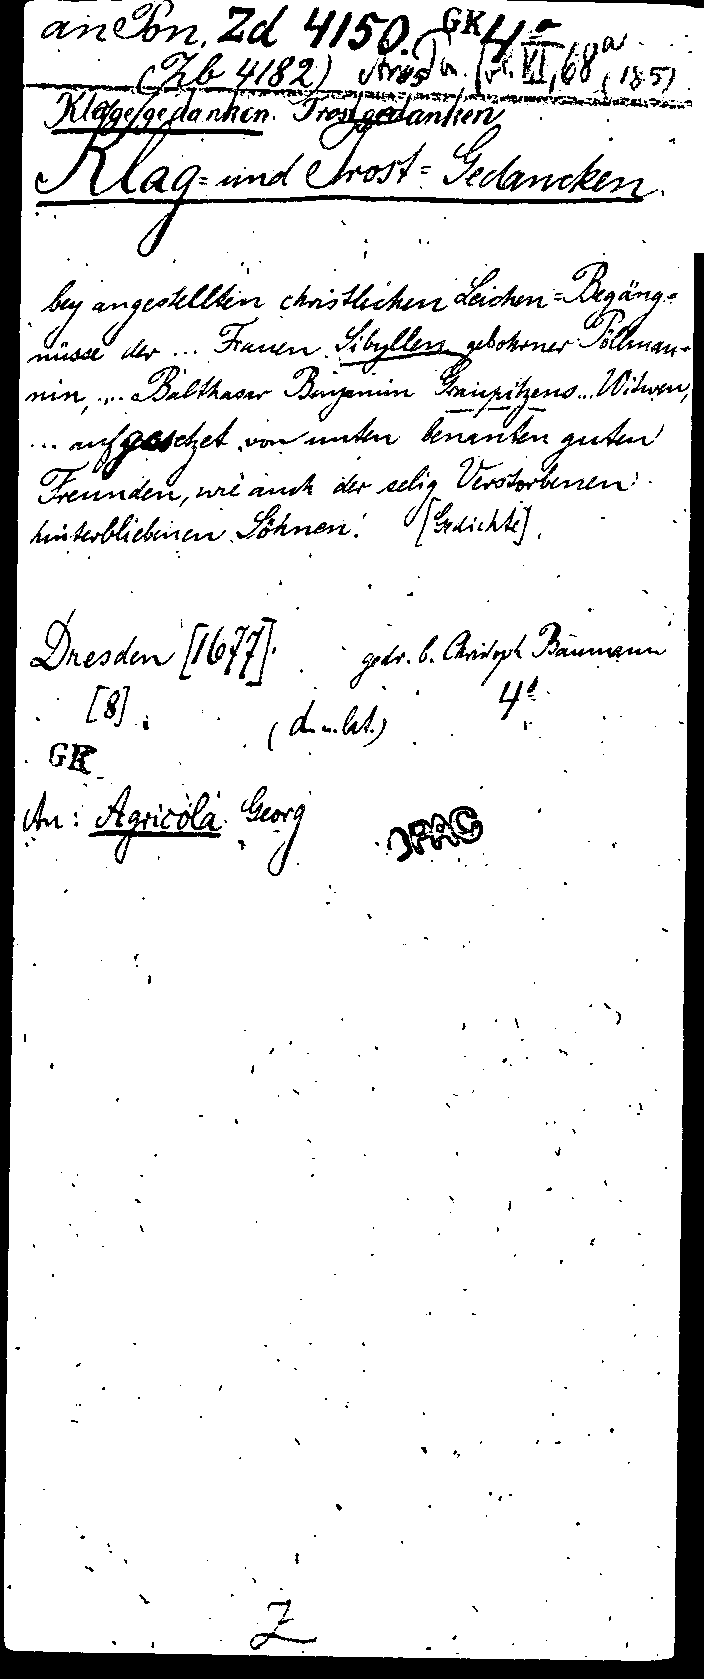 an Pon. Zd 4150. GK 4°
(Zb 4182) VI, 68a (185)
Klag/ge/gedanken. Trostgedanken
Klag= und Trost= Gedancken.
bey angestellten christlichen Leichen=Begäng=
nüsse der ... Frauen Sibyllen gebohrner Pöllman=
nin, ... Balthasar Benjamin Graupitzens... Witwen,
... aufgesetzet von unten benanten guten
Freunden, wie auch der selig Verstorbenen
hinterbliebenen Söhnen. [Gedichte].
Dresden [1677]. gedr. b. Christoph Baumann
[8] (d. u. lat.) 4°
GK
An: Agricola Georg
OPAC
Z